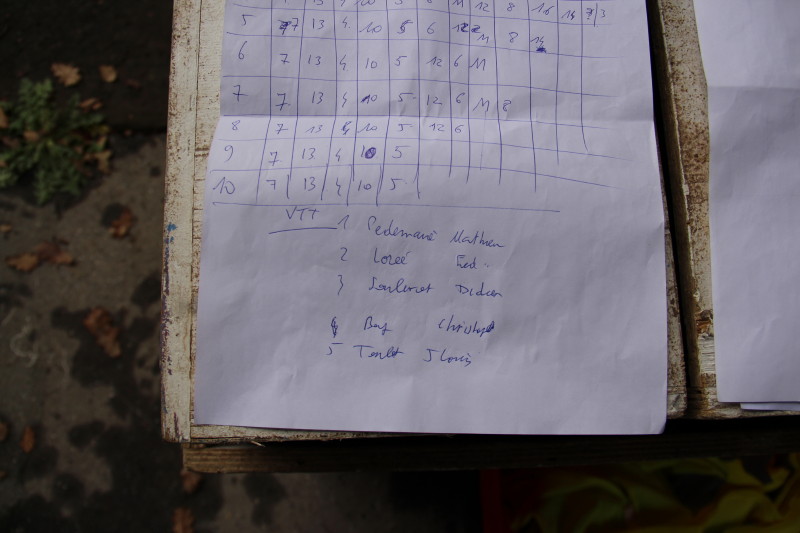 13 4 10 5 6 M 12 8 16 14 7 3
5 7 13 4 10 5 6 12 M 8 14
6 7 13 4 10 5 12 6 M
7 7 13 4 10 5 12 6 M 8
8 7 13 4 10 5 12 6
9 7 13 4 10 5
10 7 13 4 10 5
VTT
1 Mathieu
2 Lozeé Fred
3 Didier
4 Bay Christoph
5 J Louis